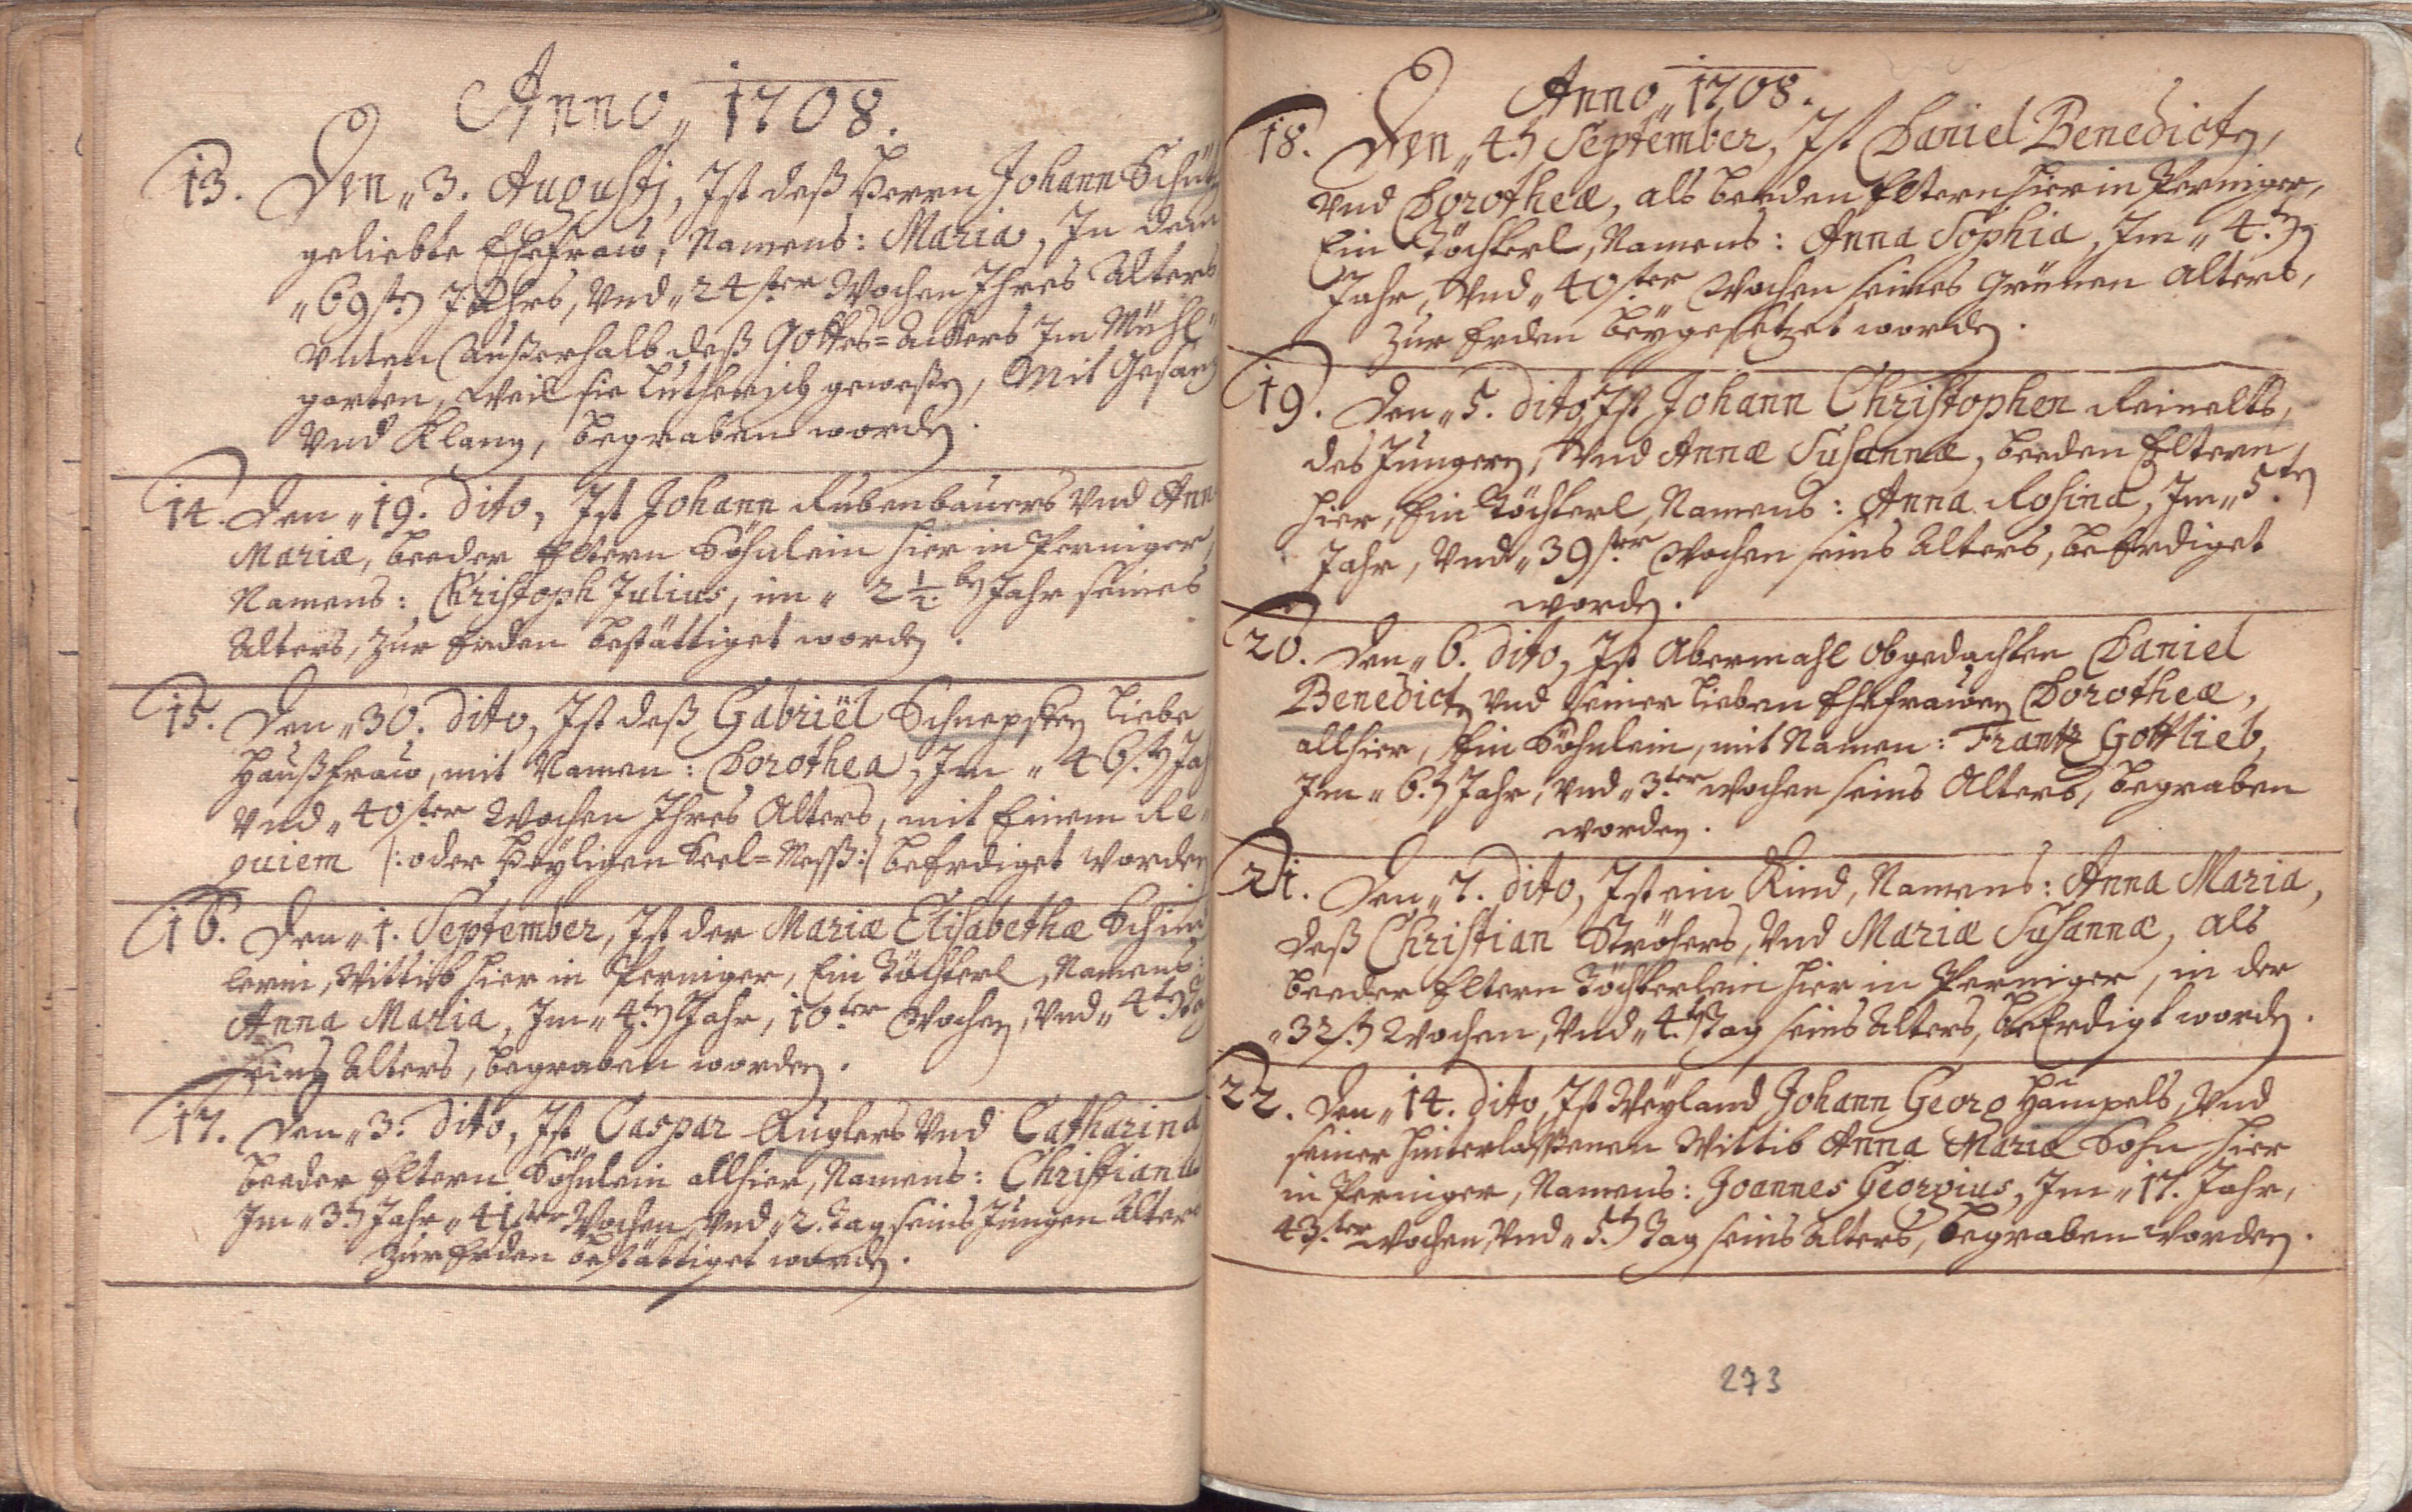 Anno „ 1708.
13. Den „ 3. Augustj, Ist deß Herrn Johann Schütz
geliebte Ehefraw, Namens: Maria, In dem
„ 69sten Jahrs, Vnd „ 24ster Wochen Ihres Alters
Vnten Außerhalb deß Gottes=Ackers Im Mühl„
garten, Weil sie Lutherisch geweßen, Mit Gesang
Vnd Klang, begraben worden.
14. Den „ 19. dito, Ist Johann Rubenbauers Vnd Ann
Mariæ, beeder Eltern Söhnlein hier in Perninger,
Namens: Christoph Julius, im „ 2 1/2 ten Jahr seines
Alters, Zur Erden bestättiget worden.
15. Den „ 30. dito, Ist deß Gabriël Schnepffen Liebe
Haußfraw, mit Namen: Dorothea, Im „ 46.ten Ja
Vnd „ 40ster Wochen Ihres Alters, mit Einem Re„
quiem /: oder Heyligen Seel=Meß :/ beErdiget worden
16. Den „ 1. September, Ist der Mariæ Elisabethæ Schind
lerin, Wittib hier in Perninger, Ein Töchterl, Namens:
Anna Maria, Im „ 4.ten Jahr, 10ter Wochen, Vnd „ 4ten Tag
seins Alters, begraben worden.
17. Den „ 3. dito, Ist Caspar Kuglers Vnd Catharina
beeder Eltern Söhnlein allhier, Namens: Christian
Im „ 3.ten Jahr „ 41ster Wochen, Vnd „ 2. Tag seins Jungen Alters
Zur Erden bestättiget worden.
Anno „ 1708.
18. Den „ 4.ten September, Ist Daniel Benedicten,
Vnd Dorotheæ, als beeden Eltern hier in Perninger,
Ein Töchterl, Namens: Anna Sophia, Im „ 4.ten
Jahr, Vnd „ 40ster „ Wochen seines Grünen Alters,
Zur Erden beygesetzet worden.
19. Den „ 5. dito, Ist Johann Christophen Reinelts,
des Jüngern, Vnd Annæ Susannæ, beeden Eltern
hier, Ein Töchterl, Namens: Anna Rosina, Im „ 5.ten
Jahr, Vnd „ 39ster Wochen seins Alters, beErdiget
worden.
20. Den „ 6. dito, Ist Abermahl obgedachten Daniel
Benedicten Vnd seiner lieben Ehefrawen Dorotheæ,
allhier, Ein Söhnlein, mit Namen: Frantz Gottlieb,
Im „ 6.ten Jahr, Vnd „ 3.ter Wochen seins Alters, begraben
worden.
21. Den „ 7. dito, Ist ein Kind, Namens: Anna Maria,
deß Christian Ströhers, Vnd Mariæ Susannæ, als
beeder Eltern Töchterlein hier in Perninger, in der
„ 32.ten Wochen, Vnd „ 4.ten Tag seins Alters, beErdigt worden.
22. Den „ 14. dito, Ist Weyland Johann Georg Hampels, Vnd
seiner hinterlaßenen Wittib Anna Mariæ Sohn hier
in Perninger, Namens: Joannes Georgius, Im „ 17. Jahr,
43.ter Wochen, Vnd „ 5.ten Tag seins Alters, begraben worden.
273